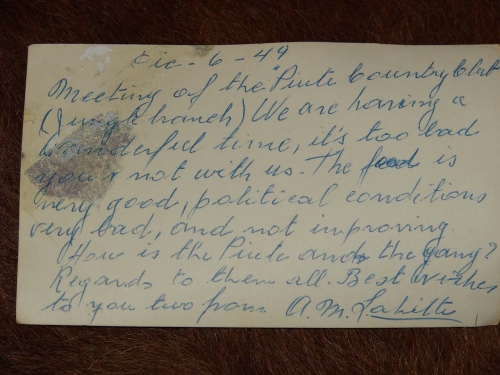 Dic - 6 - 49
Meeting of the "Piute Country Club"
(Jungle branch) We are having a
wonderful time, it's too bad
you r not with us. The food is
very good, political conditions
very bad, and not improving.
How is the Piute and the gang?
Regards to them all. Best wishes
to you two from A.M. Lahitte